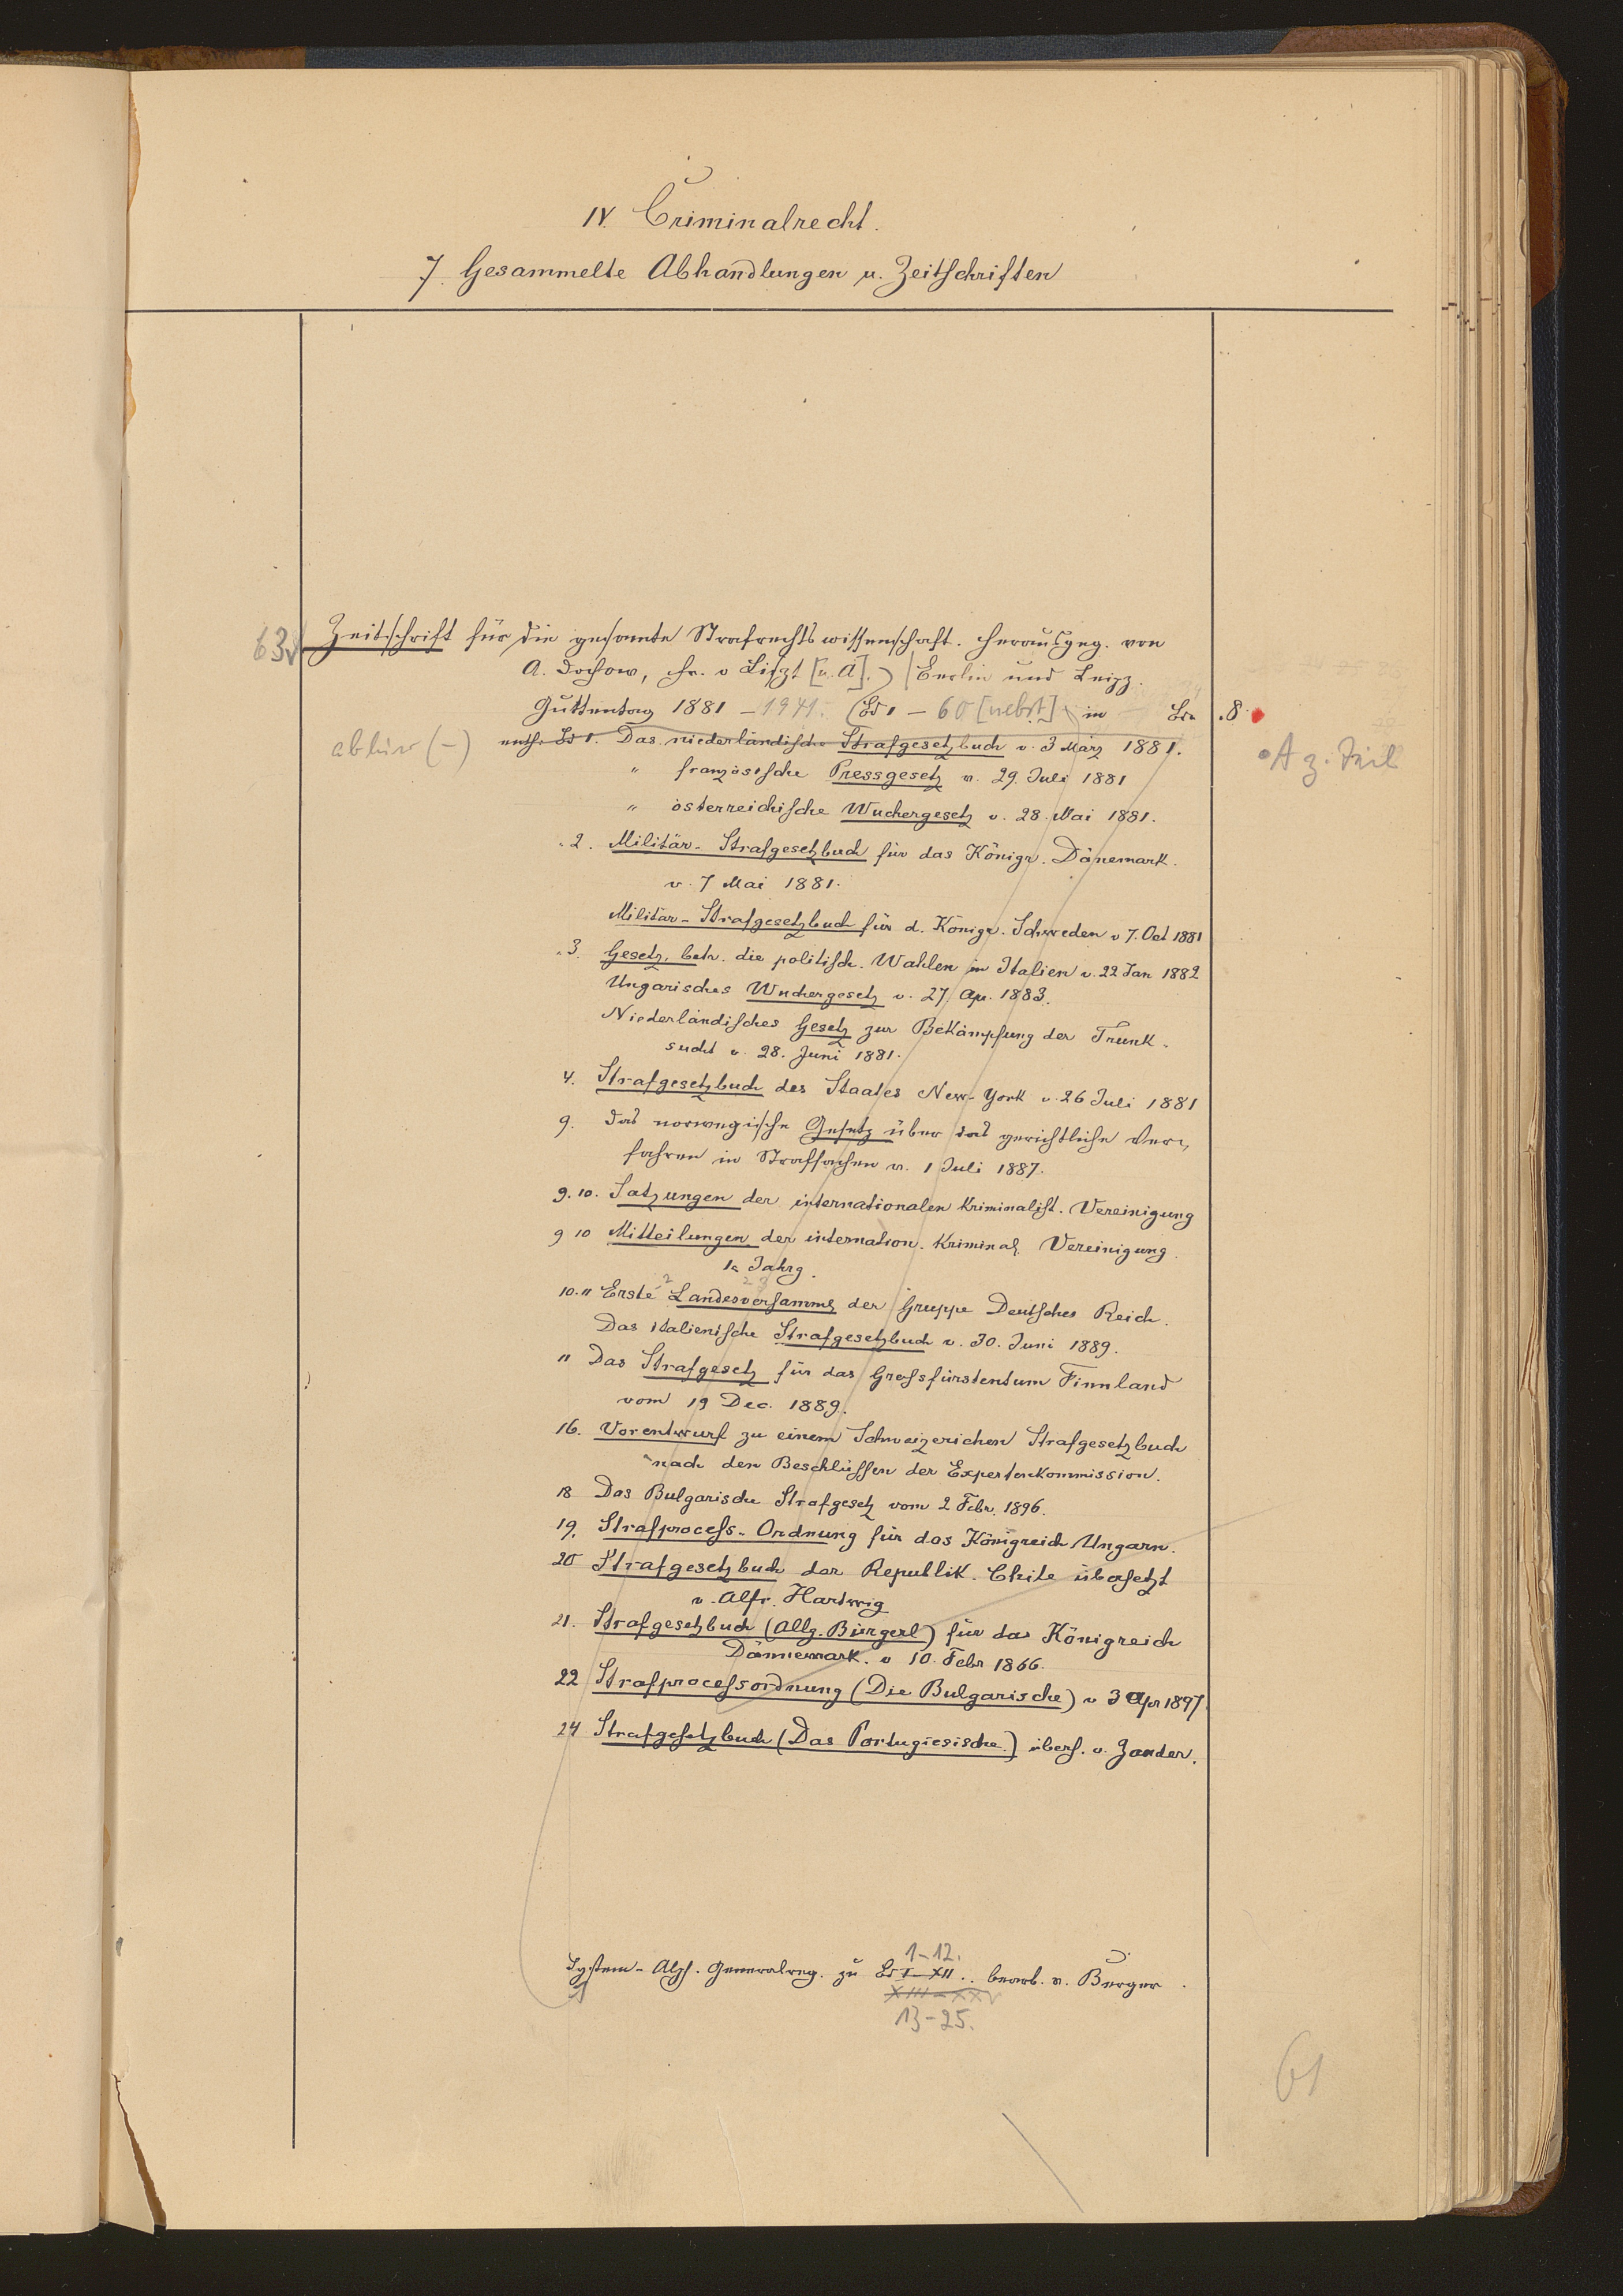 IV. Criminalrecht.
7. Gesammelte Abhandlungen u. Zeitschriften
63 Zeitschrift für die gesamte Strafrechtswissenschaft. Herausgeg. von
A. Dochow, Fr. v Liszt [u. A].) (Berlin und Leipz.
Guttentag 1881 - 1941. (Bd 1 - 60 [nebst] in Bde .8
abkürz (-) enth. Bd 1. Das niederländische Strafgesetzbuch v. 3 März 1881.
A z. Teil
" französische Pressgesetz v. 29. Juli 1881
" österreichische Wuchergesetz v. 28. Mai 1881.
2. Militär-Strafgesetzbuch für das Königr. Dänemark.
v. 7 Mai 1881.
Militär-Strafgesetzbuch für d. Königr. Schweden v 7. Oct 1881
3 Gesetz, betr. die politisch. Wahlen in Italien v. 22 Jan 1882
Ungarisches Wuchergesetz v. 27. Apr. 1883.
Niederländisches Gesetz zur Bekämpfung der Trunk-
sucht v. 28. Juni 1881.
4. Strafgesetzbuch des Staates New-York v. 26 Juli 1881
9. Das norwegische Gesetz über das gerichtliche Ver-
fahren in Strafsachen v. 1 Juli 1887.
9. 10. Satzungen der internationalen Kriminalist. Vereinigung
9 10 Mitteilungen der internation. Kriminal. Vereinigung.
1r Jahrg.
10. 11 Erste Landesversamml der Gruppe Deutsches Reich.
Das italienische Strafgesetzbuch v. 30. Juni 1889.
11 Das Strafgesetz für das Grossfürstentum Finnland
vom 19 Dec. 1889.
16. Vorentwurf zu einem Schweizerichen Strafgesetzbuch
nach den Beschlüssen der Expertenkommission.
18 Das Bulgarische Strafgesetz vom 2 Febr. 1896.
19. Strafprocess-Ordnung für das Königreich Ungarn.
20 Strafgesetzbuch der Republik Chile übersetzt
v. Alfr. Hartwig
21. Strafgesetzbuch (Allg. Bürgerl) für das Königreich
Dännemark. v 10. Febr 1866.
22 Strafprocessordnung (Die Bulgarische) v 3 Apr 1897.
24 Strafgesetzbuch (Das Portugiesische) übers. v. Zander.
1-12.
System-Alph. Generalreg. zu Bd I-XII.. bearb. v. Berger.
XIII-XXV
13-25.
61